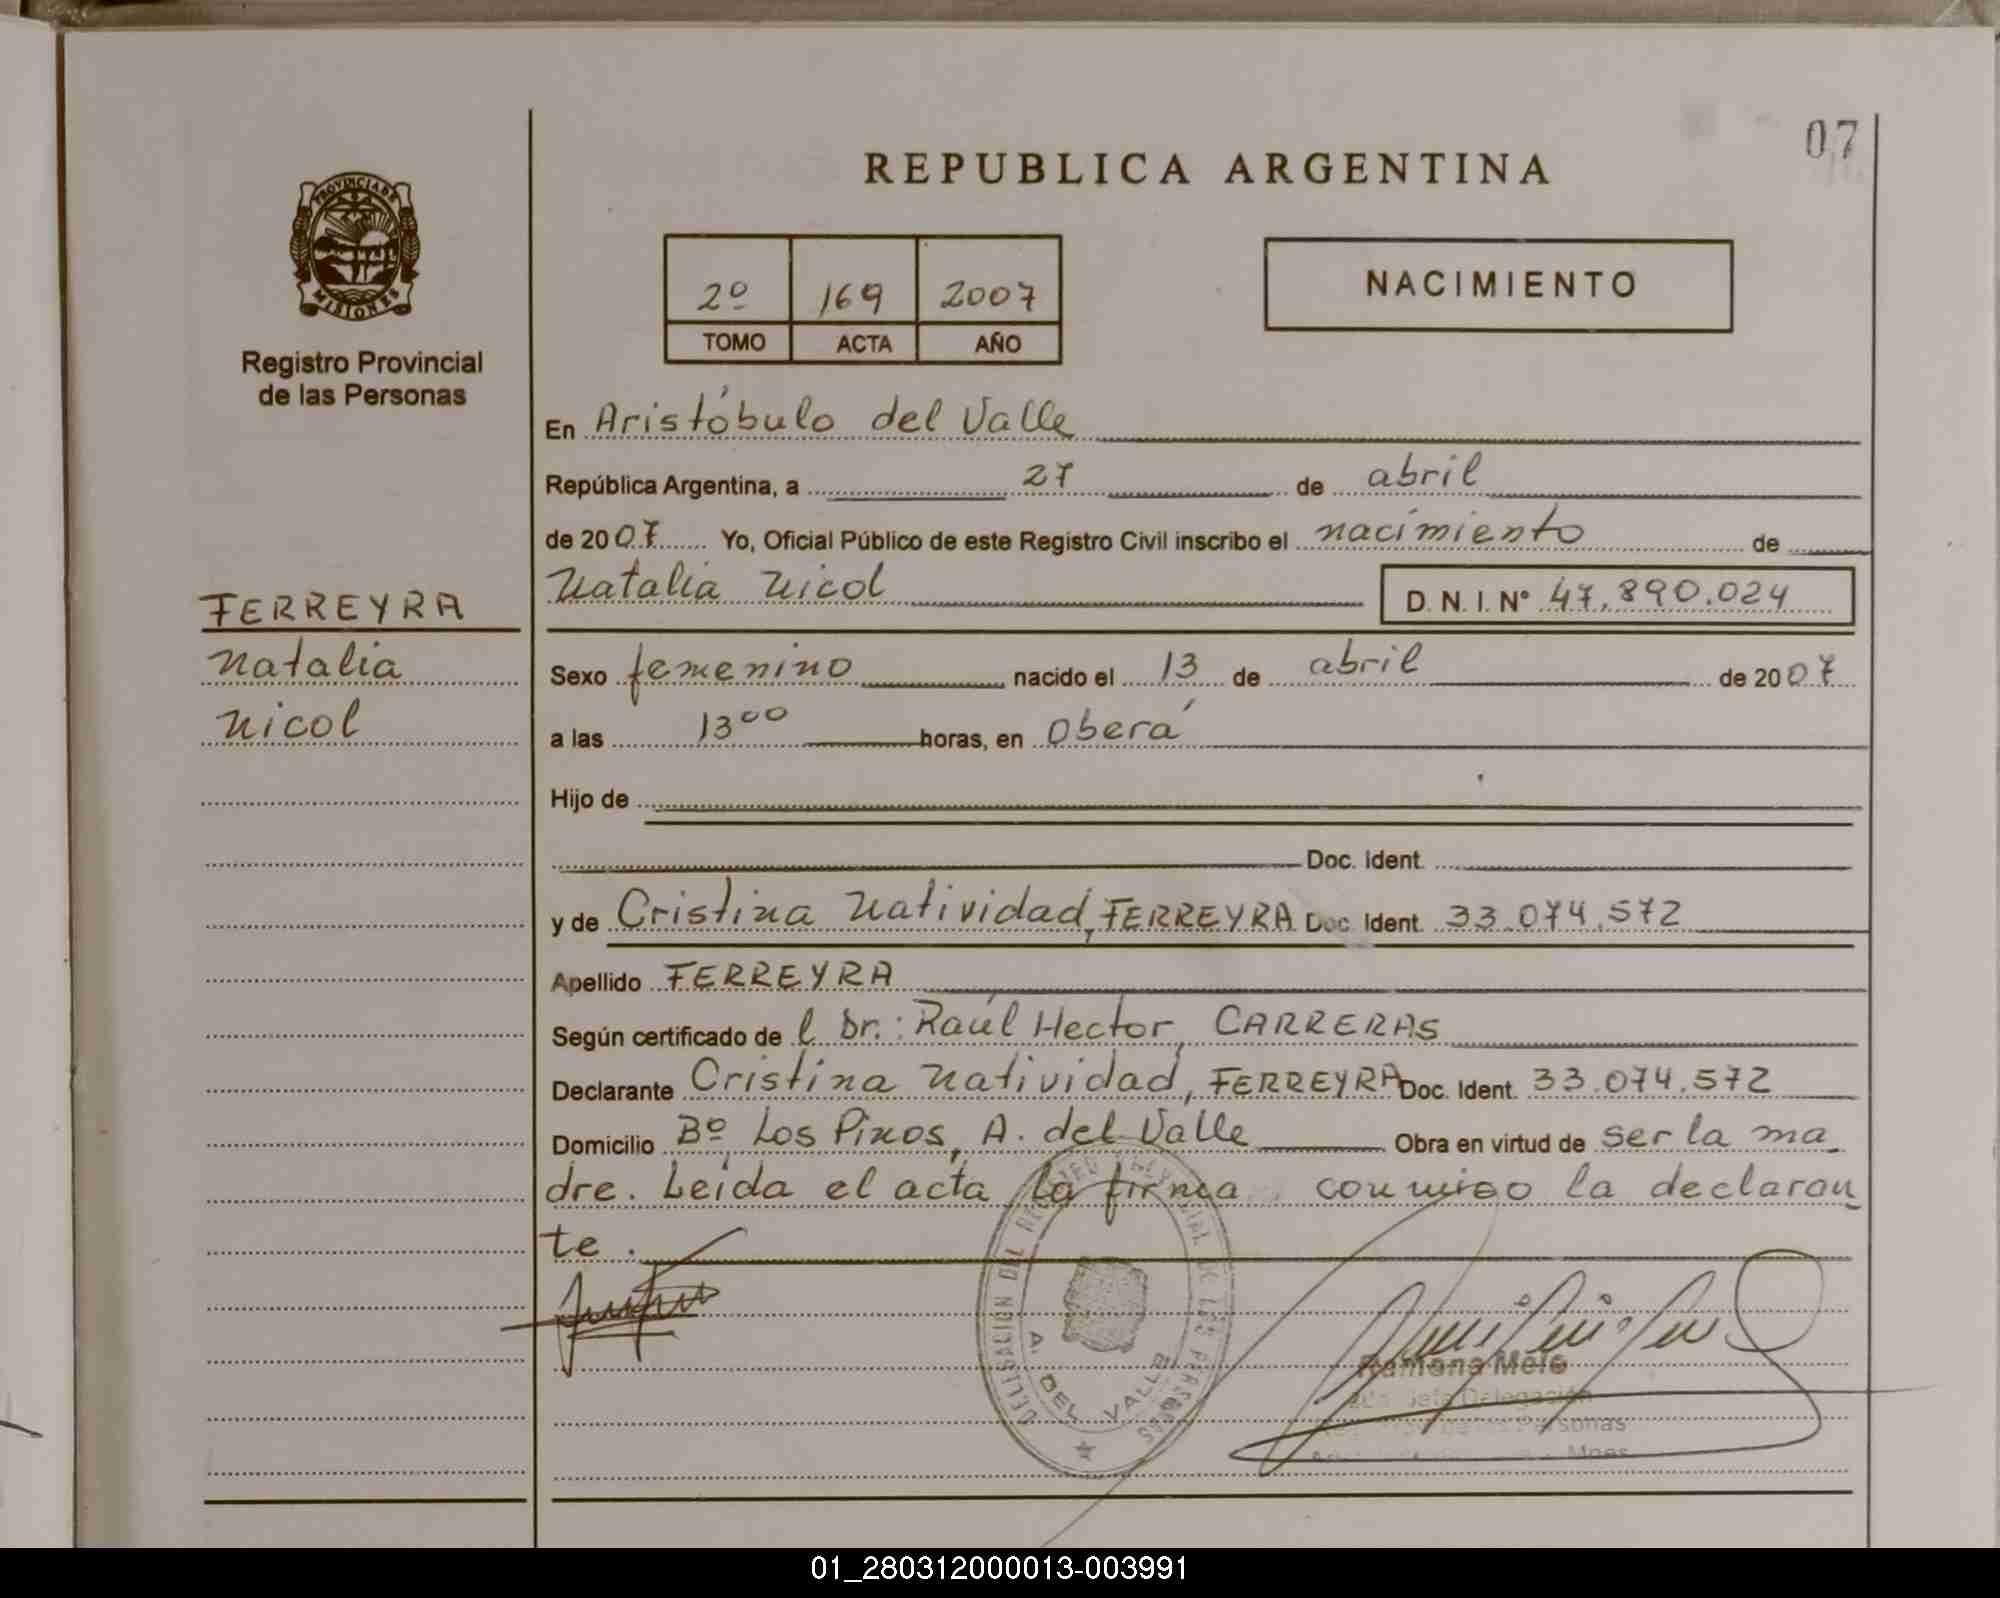 07
REPUBLICA ARGENTINA
PROVINCIA DE
MISIONES
Registro Provincial
de las Personas
2º 169 2007
TOMO ACTA AÑO
NACIMIENTO
En Aristóbulo del Valle
República Argentina, a 27 de abril
de 2007 Yo, Oficial Público de este Registro Civil inscribo el nacimiento de
Natalia Nicol D. N. I. Nº 47.890.024
FERREYRA
Natalia
Nicol
Sexo femenino nacido el 13 de abril de 2007
a las 13 00 horas, en Oberá
Hijo de
Doc. Ident.
y de Cristina Natividad, FERREYRA Doc. Ident. 33.074.572
Apellido FERREYRA
Según certificado de l Dr.: Raúl Hector, CARRERAS
Declarante Cristina Natividad, FERREYRA Doc. Ident. 33.074.572
Domicilio Bº Los Pinos, A. del Valle Obra en virtud de ser la ma
dre. Leída el acta la firma conmigo la declaran
te.
DELEGACION DEL REGISTRO PROVINCIAL DE LAS PERSONAS
A. DEL VALLE
Ramona Melo
Jefa Delegación
de las Personas
Mnes
01_280312000013-003991